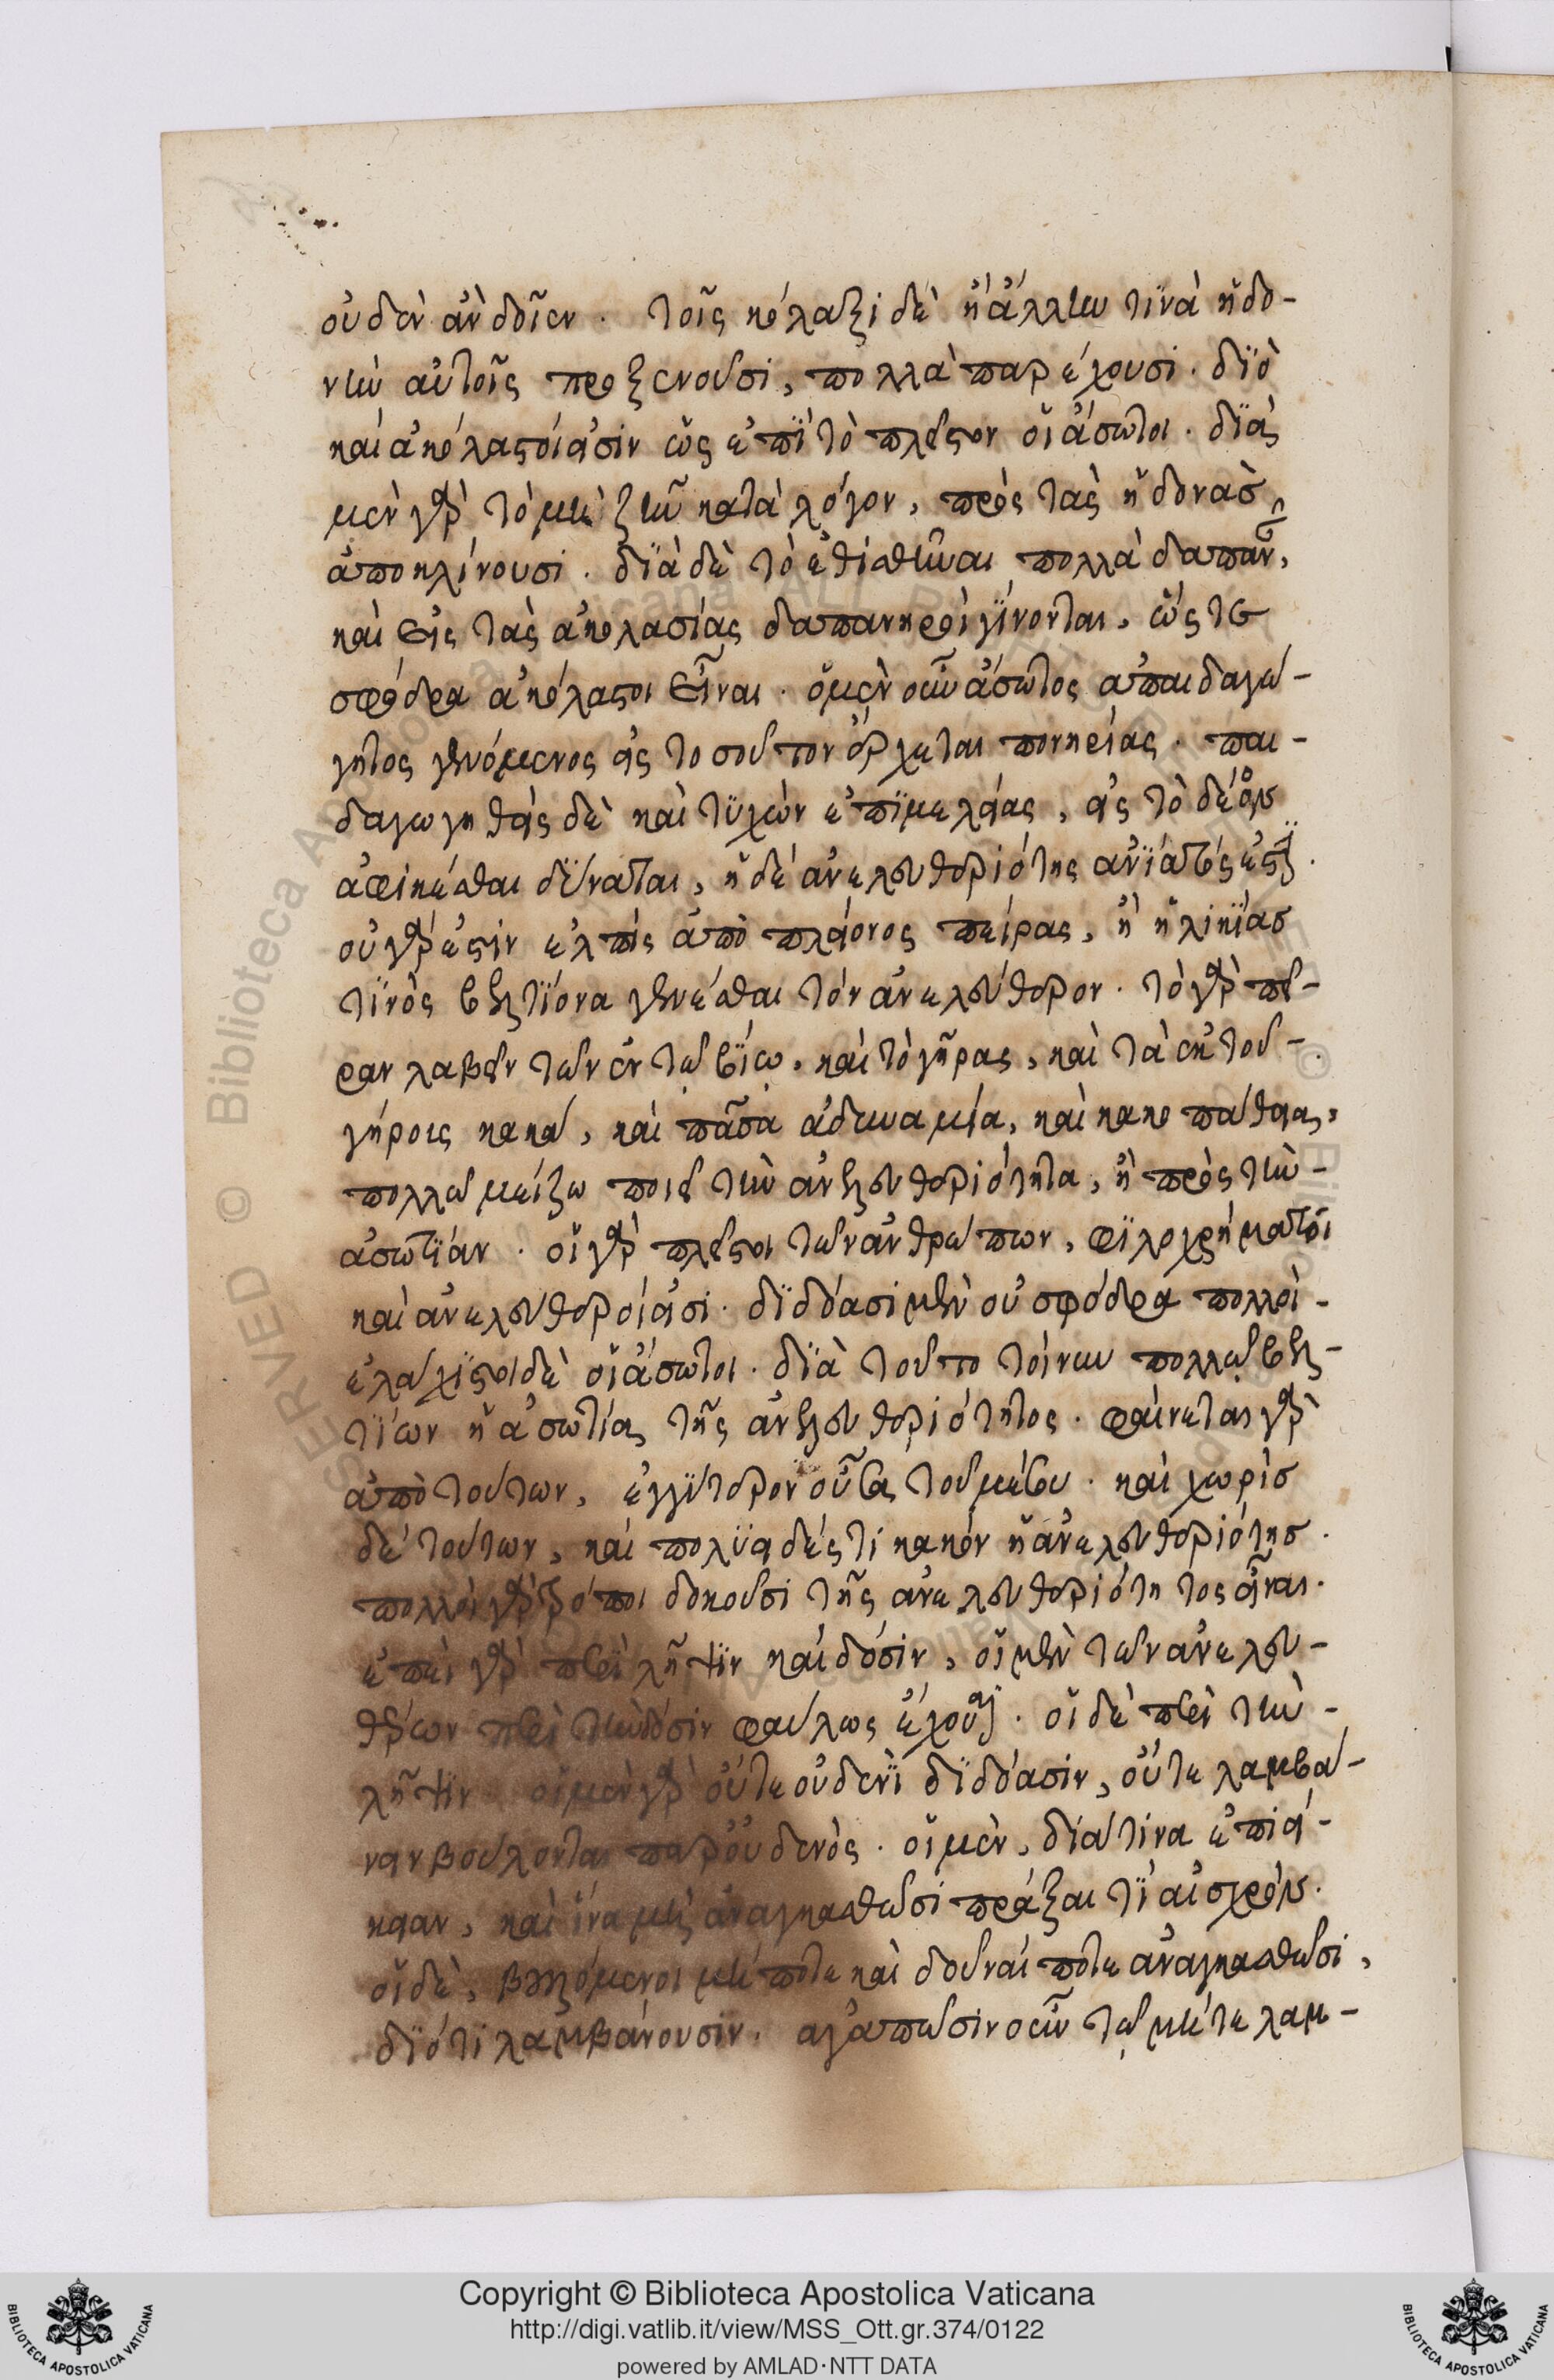 οὐδὲν ἂν δοῖεν. τοῖς κόλαξι δὲ ἢ ἄλλην τινὰ ἡδο-
νὴν αὐτοῖς προξενοῦσι, πολλὰ παρέχουσι. διὸ
καὶ ἀκόλαστοί εἰσιν ὡς ἐπὶ τὸ πλεῖστον οἱ ἄσωτοι. διὰ
μὲν γὰρ τὸ μὴ ζῆν κατὰ λόγον, πρὸς τὰς ἡδονὰς
ἀποκλίνουσι. διὰ δὲ τὸ ἐθισθῆναι πολλὰ δαπανᾶν,
καὶ εἰς τὰς ἀκολασίας δαπανηροὶ γίνονται, ὥστε
σφόδρα ἀκόλαστοι εἶναι. ὁ μὲν οὖν ἄσωτος ἀπαιδαγώ-
γητος γενόμενος εἰς τοσοῦτον ἔρχεται πονηρίας. παι-
δαγωγηθεὶς δὲ καὶ τυχὼν ἐπιμελείας, εἰς τὸ δέον
ἀφικέσθαι δύναται, ἡ δὲ ἀνελευθεριότης ἀνίατός ἐστι.
οὐ γάρ ἐστιν ἐλπὶς ἀπὸ πλείονος πείρας, ἢ ἡλικίας
τινὸς βελτίονα γενέσθαι τὸν ἀνελεύθερον. τὸ γὰρ πεῖ-
ραν λαβεῖν τῶν ἐν τῷ βίῳ, καὶ τὸ γῆρας, καὶ τὰ ἐκ τοῦ-
γήρους κακά, καὶ πᾶσα ἀδυναμία, καὶ κακοπάθεια,
πολλῷ μείζω ποιεῖ τὴν ἀνελευθεριότητα, ἢ πρὸς τὴν-
ἀσωτίαν. οἱ γὰρ πλεῖστοι τῶν ἀνθρώπων, φιλοχρήματοι
καὶ ἀνελεύθεροί εἰσι. διδόασι μὲν οὐ σφόδρα πολλοὶ-
ἐλάχιστοι δὲ οἱ ἄσωτοι. διὰ τοῦτο τοίνυν πολλῷ βελ-
τίων ἡ ἀσωτία τῆς ἀνελευθεριότητος. φαίνεται γὰρ
ἀπὸ τούτων, ἐγγύτερον οὖσα τοῦ μέσου. καὶ χωρὶς
δὲ τούτων, καὶ πολυειδές τι κακὸν ἡ ἀνελευθεριότης.
πολλοὶ γὰρ τρόποι δοκοῦσι τῆς ἀνελευθεριότητος εἶναι.
ἐπεὶ γὰρ περὶ λῆψιν καὶ δόσιν, οἱ μὲν τῶν ἀνελευ-
θέρων περὶ τὴν δόσιν φαύλως ἔχουσι. οἱ δὲ περὶ τὴν-
λῆψιν οἱ μὲν γὰρ οὔτε οὐδενὶ διδόασιν, οὔτε λαμβά-
νειν βούλονται παρ' οὐδενός. οἱ μὲν, διά τινα ἐπιεί-
κειαν, καὶ ἵνα μὴ ἀναγκασθῶσι πρᾶξαι τὶ αἰσχρόν.
οἱ δὲ, μήποτε καὶ δοῦναί ποτε ἀναγκασθῶσι,
διότι λαμβάνουσιν. ἀγαπῶσιν οὖν τῷ μήτε λαμ-
Copyright © Biblioteca Apostolica Vaticana
http://digi.vatlib.it/view/MSS_Ott.gr.374/0122
powered by AMLAD·NTT DATA